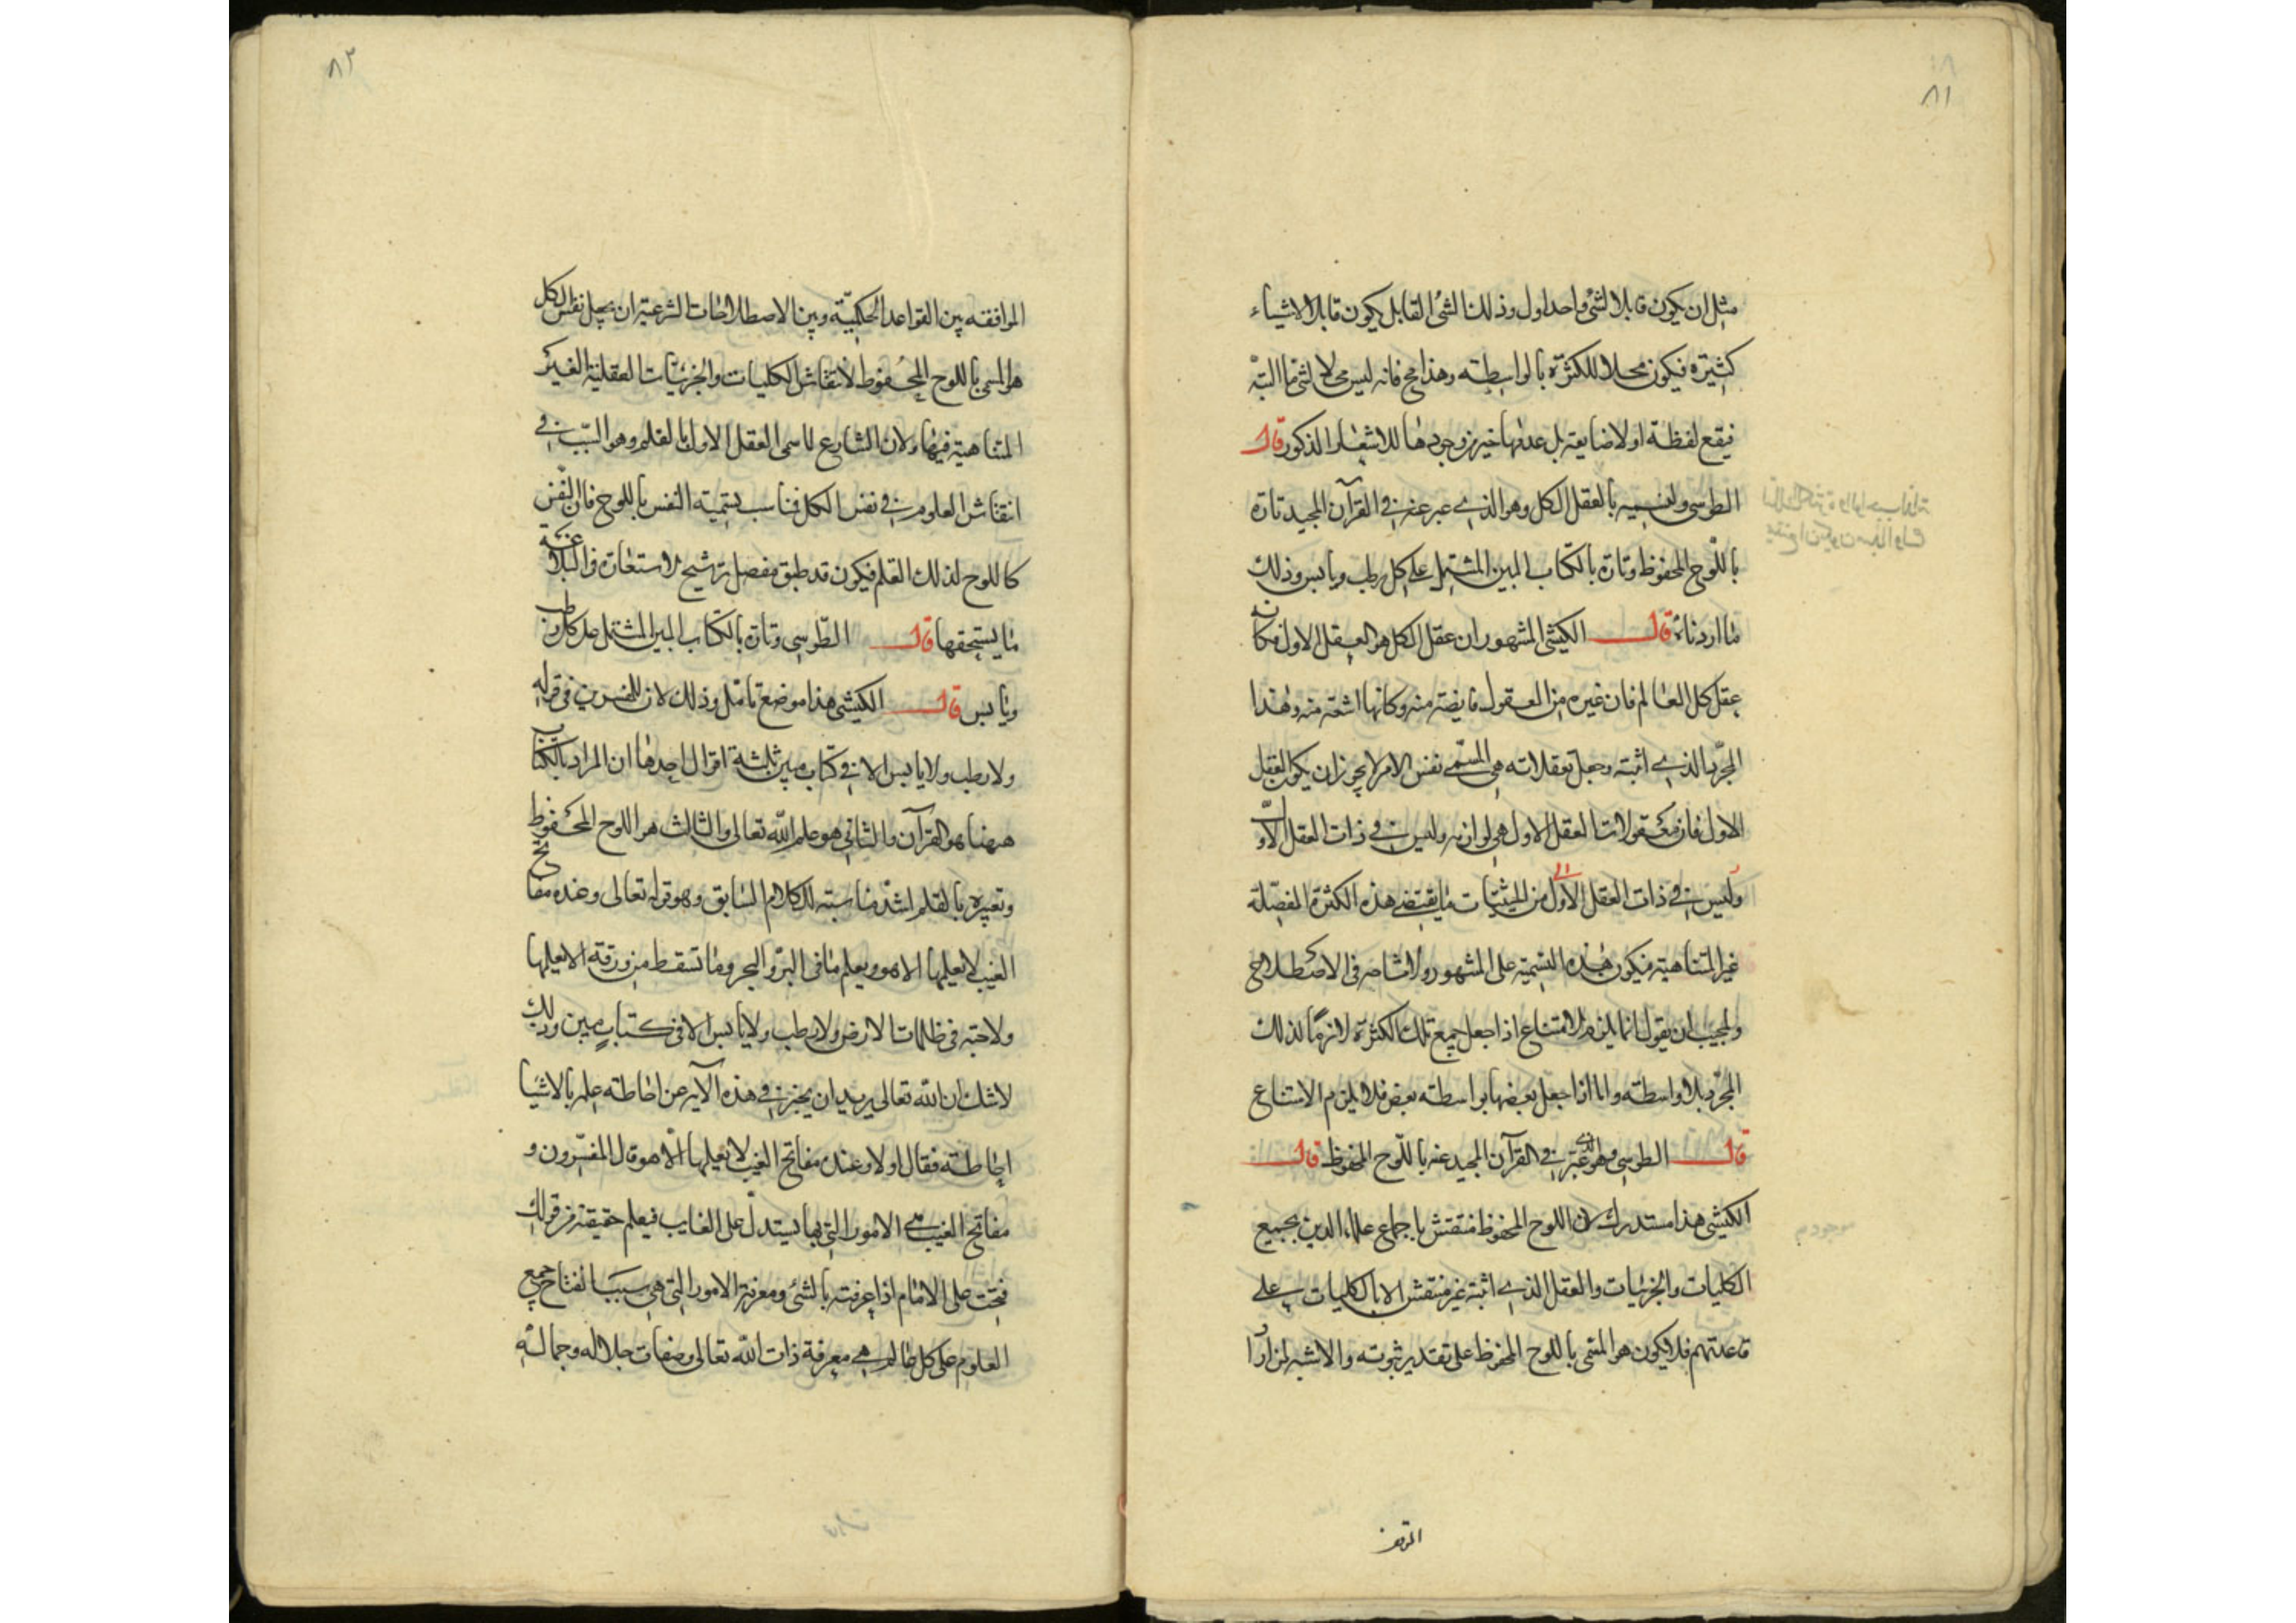 ٨١
مثل ان يكون قابلا لشئ واحد اول وذلك الشئ القابل يكون قابلا لاشياء
كثيرة فيكون محلا للكثرة بالواسطة وهذا مح فانه ليس محلا لشئ ما البتة
فيقع لفظة اولا ضايعة بل عدمها خير من وجودها للاشعار المذكور قال
الطوسى ولنسميه بالعقل الكل وهو الذى عبر عنه فى القرآن المجيد تارة
باللوح المحفوظ وتارة بالكتاب المبين المشتمل على كل رطب ويابس وذلك
ما اردناه قال الكيشى المشهور ان عقل الكل هو العقل الاول فكانه
عقل كل العالم فان غيره من العقول فايضة منه وكانها اشعة منه وهذا
المجرد الذى اثبته وجعل تعقلاته هى المسمى نفس الامر لا يجوز ان يكون العقل
الاول فان معقولات العقل الاول هى لوازمه وليس فى ذات العقل الاول
وليس فى ذات العقل الاول من الحيثيات ما يقتضى هذه الكثرة المفصلة
غير المتناهية فيكون هذه التسمية على المشهور ولا مشاحة فى الاصطلاح
ولمجيب ان يقول انما يلزم الامتناع اذا جعل جميع تلك الكثرة لازما لذلك
المجرد بلا واسطة واما اذا جعل بعضها بواسطة بعض فلا يلزم الامتناع
قال الطوسى وهو الذى عبر فى القرآن المجيد عنه باللوح المحفوظ قال
الكيشى هذا مستدرك لان اللوح المحفوظ منتقش باجماع علماء الدين بجميع
الكليات والجزئيات والعقل الذى اثبته غير منتقش الا بالكليات على
قاعدتهم فلا يكون هو المسمى باللوح المحفوظ على تقدير ثبوته والاشبه لمن اراد
٨٢
الموافقه بين القواعد الحكمية وبين الاصطلاحات الشرعية ان يجعل نفس الكل
هو المسمى باللوح المحفوظ لانتقاش الكليات والجزئيات العقلية الغير
المتناهية فيها ولان الشارع لما سمى العقل الاول بالقلم وهو السبب فى
انتقاش العلوم فى نفس الكل فناسب تسمية النفس باللوح فان النفس
كاللوح لذلك القلم فيكون قد طبق مفصل ترشيح الاستعارة والبلاغة
ما يستحقها قال الطوسى وتارة بالكتاب المبين المشتمل على كل رطب
ويابس قال الكيشى هذا موضع تامل وذلك لان للمفسرين فى قوله
ولا رطب ولا يابس الا فى كتاب مبين ثلثة اقوال احدها ان المراد بالكتاب
ههنا هو القرآن والثانى هو علم الله تعالى والثالث هو اللوح المحفوظ
وتعبيره بالقلم اشد مناسبة للكلام السابق وهو قوله تعالى وعنده مفاتح
الغيب لا يعلمها الا هو ويعلم ما فى البر والبحر وما تسقط من ورقة الا يعلمها
ولا حبة فى ظلمات الارض ولا رطب ولا يابس الا فى كتاب مبين وذلك
لا شك ان الله تعالى يريد ان يخبر فى هذه الآية عن احاطة علمه بالاشيا
احاطة فقال اولا وعنده مفاتح الغيب لا يعلمها الا هو قال المفسرون و
مفاتح الغيب هى الامور التى بها يستدل على الغايب فيعلم حقيقته من قولك
فتحت على الامام اذا عرفته بالشئ ومعرفة الامور التى هى سبب انفتاح جميع
العلوم على كل عالم هى معرفة ذات الله تعالى وصفات جلاله وجماله